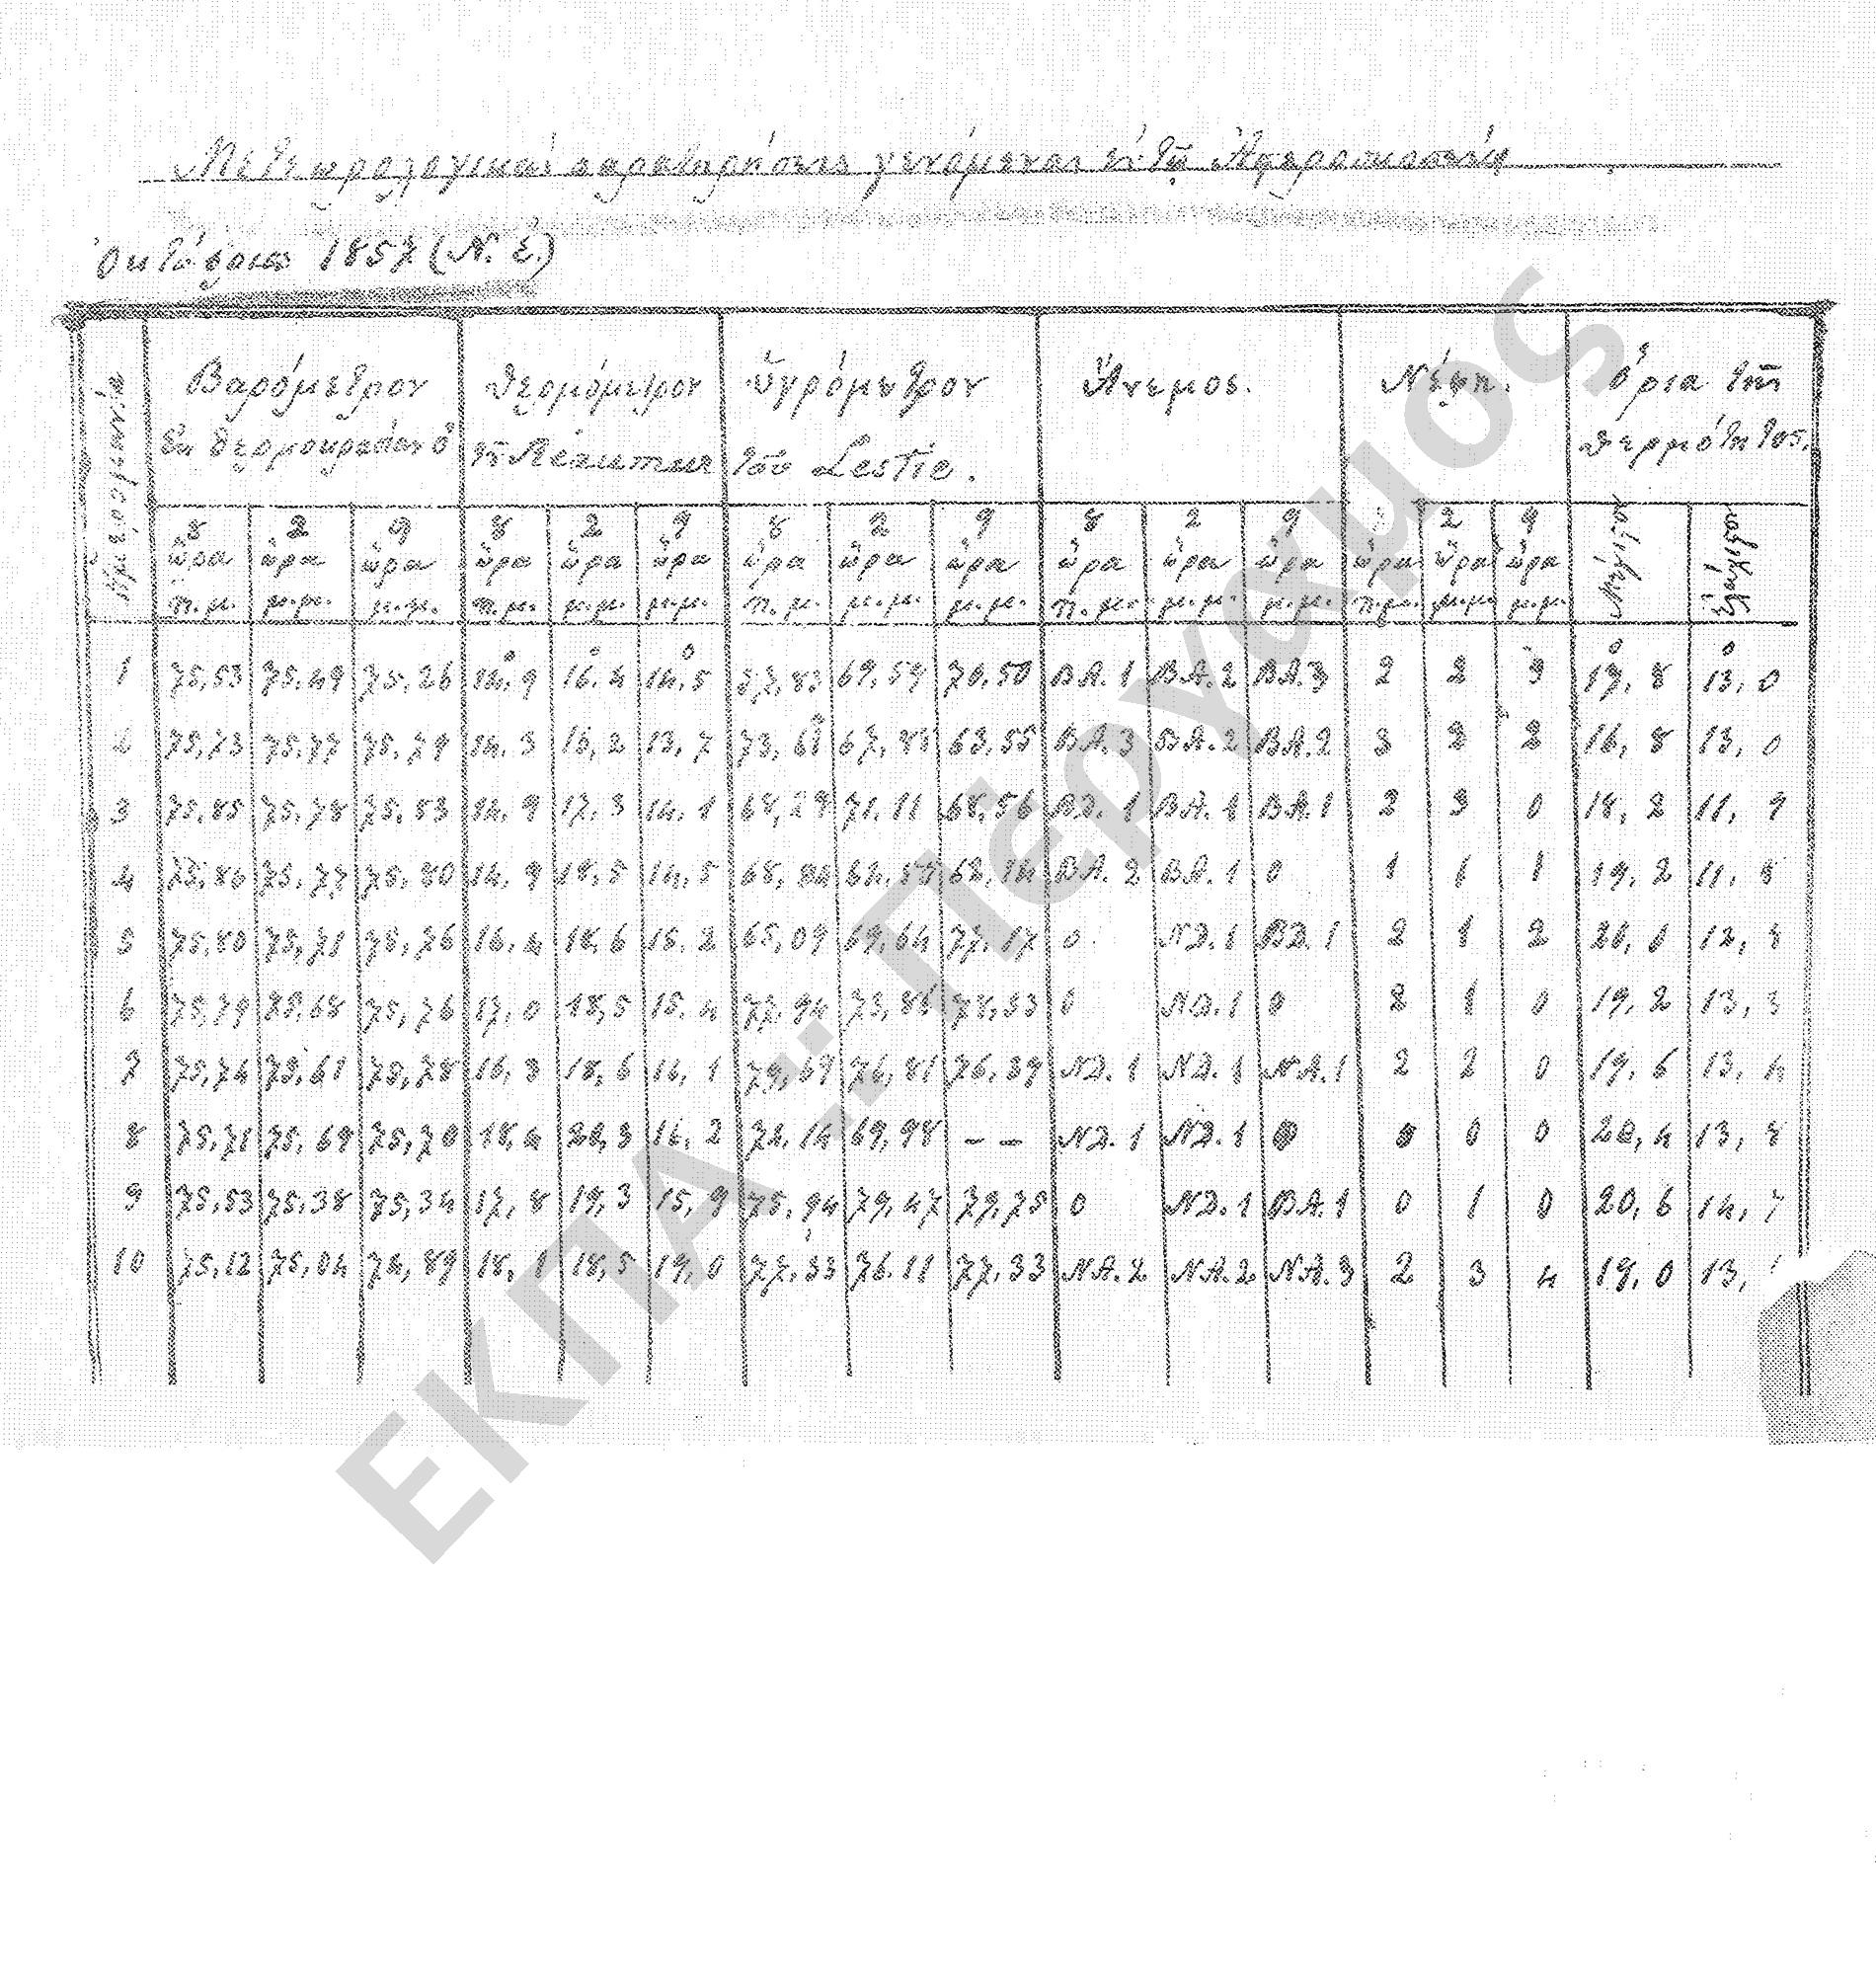 Μετεωρολογικαί παρατηρήσεις γενόμεναι ἐν τῷ Ἀστεροσκοπείῳ
Ὀκτώβριος 1857 (Ν. ἐ.)
Ἡμερομηνία
Βαρόμετρον θερμόμετρον ὑγρόμετρον Ἄνεμος. Νέφη. Ὅρια τῆς
ἐν θερμοκρασίᾳ 0 τοῦ Réaumur τοῦ Leslie. θερμότητος.
8 2 9 8 2 9 8 2 9 8 2 9 2 9 Μέγιστον Ἐλάχιστον
ὥρα ὥρα ὥρα ὥρα ὥρα ὥρα ὥρα ὥρα ὥρα ὥρα ὥρα ὥρα ὥρα ὥρα ὥρα
π.μ. μ.μ. μ.μ. π.μ. μ.μ. μ.μ. π.μ. μ.μ. μ.μ. π.μ. μ.μ. μ.μ. π.μ. μ.μ. μ.μ.
1 75,53 75,49 75,26 14,9 16,4 14,5 57,83 69,59 70,50 ΒΑ.1 ΒΑ.2 ΒΑ.3 2 2 3 17,8 13,0
2 75,73 75,77 75,79 14,3 15,2 13,7 73,68 63,55 ΒΑ.3 ΒΑ.2 ΒΑ.2 3 2 2 16,8 13,0
3 75,85 75,78 75,83 14,9 17,3 14,1 68,29 71,11 68,56 ΒΔ.1 ΒΑ.1 ΒΑ.1 2 3 0 18,2 11,9
4 75,86 75,77 75,80 14,9 18,5 14,5 62,14 ΒΑ.2 ΒΑ.1 0 1 1 1 19,2 11,8
5 75,80 75,71 75,76 16,4 18,6 15,2 65,09 69,64 77,17 0 ΝΔ.1 ΒΔ.1 2 1 2 12,8
6 75,79 75,68 75,76 17,0 18,5 15,4 77,94 73,86 78,33 0 ΝΔ.1 0 2 1 0 19,2 13,3
7 75,74 75,61 75,78 16,3 18,6 16,1 79,69 76,81 76,39 ΝΔ.1 ΝΔ.1 ΝΑ.1 2 2 0 19,6 13,4
8 75,71 75,69 75,70 18,4 20,3 16,2 72,14 69,98 – – ΝΔ.1 ΝΔ.1 0 0 0 0 20,4 13,8
9 75,53 75,38 75,34 17,8 19,3 15,9 75,94 79,47 79,75 0 ΝΔ.1 ΒΑ.1 0 1 0 20,6 14,7
10 75,12 75,04 74,89 18,1 18,5 19,0 77,33 76,11 77,33 ΝΑ.2 ΝΑ.2 ΝΑ.3 2 3 4 19,0 13,
ΕΚΠΑ...Πέργαμος